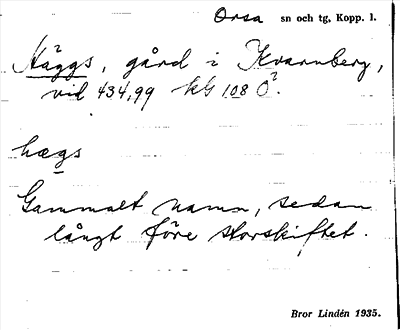 Orsa sn och tg, Kopp. l.
Häggs, gård i Kvarnberg,
vid 434,99 kG 108 Ö².
hægs
Gammalt namn, sedan
långt före storskiftet.
Bror Lindén 1935.